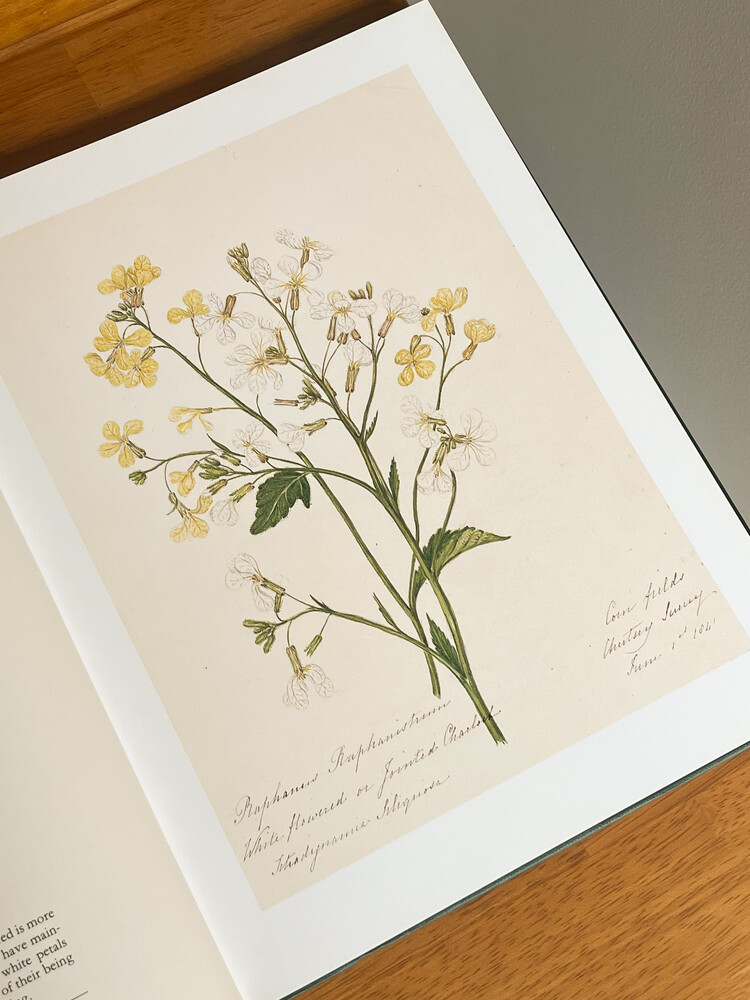 Corn fields
Chertsey Surrey
June 1st 1841
Raphanus Raphanistrum
White flowered or Jointed Charlock
Tetradynamia Siliquosa
ed is more
have main-
white petals
of their being